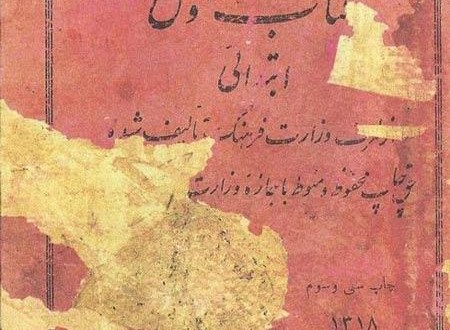 کتاب اول
ابتدائی
از طرف وزارت فرهنگ تألیف شده
حق چاپ محفوظ و منوط باجازه وزارت
چاپ سی و سوم
۱۳۱۸